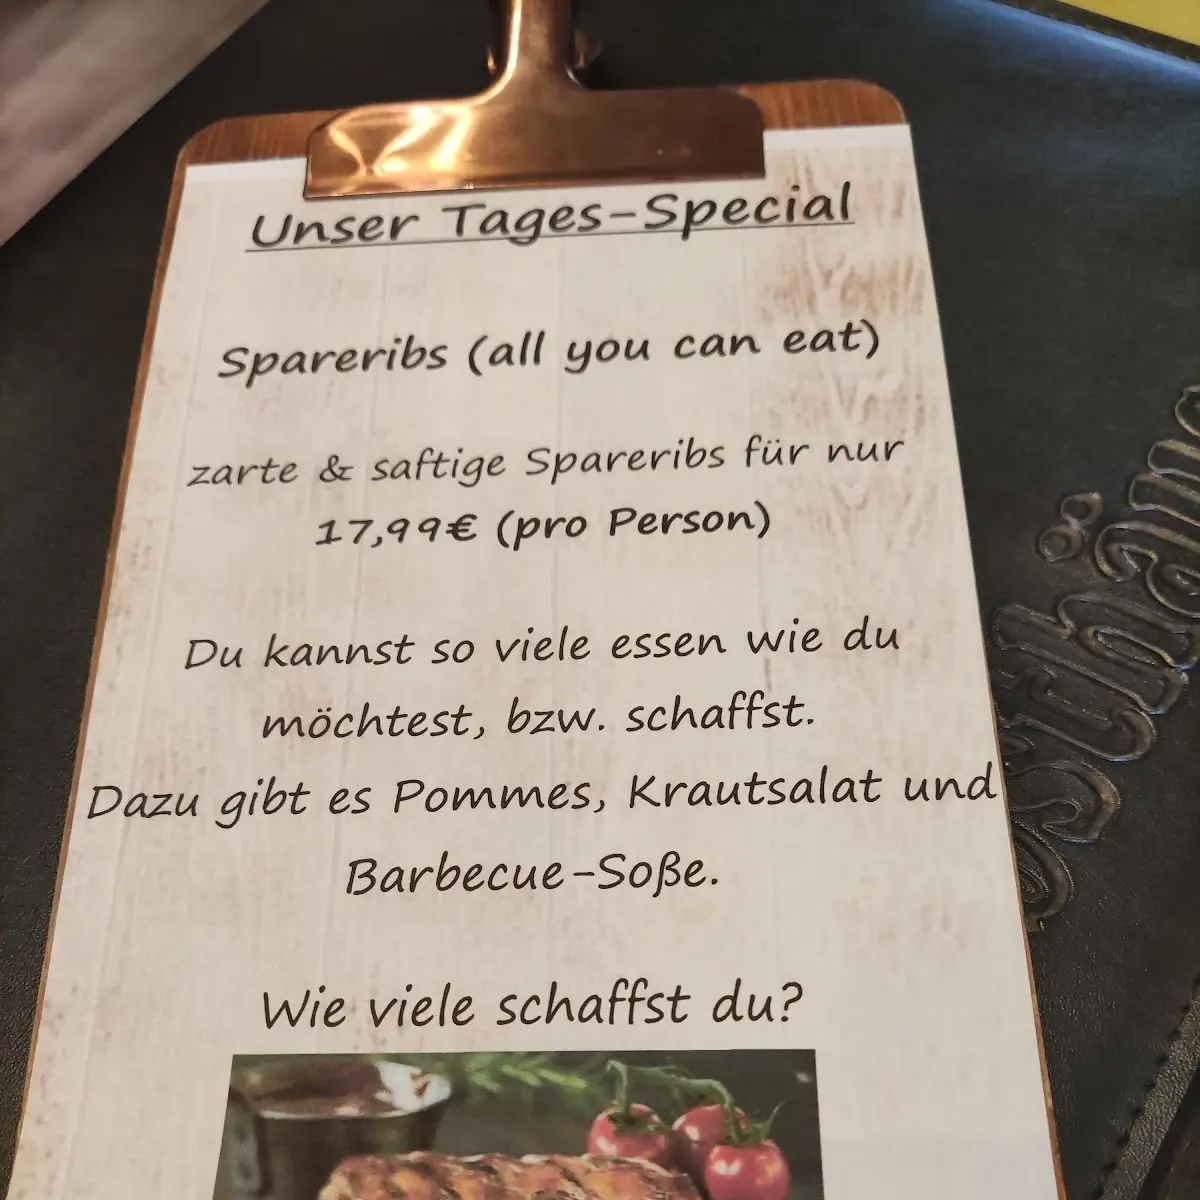 Unser Tages-Special
Spareribs (all you can eat)
zarte & saftige Spareribs für nur
17,99€ (pro Person)
Du kannst so viele essen wie du
möchtest, bzw. schaffst.
Dazu gibt es Pommes, Krautsalat und
Barbecue-Soße.
Wie viele schaffst du?